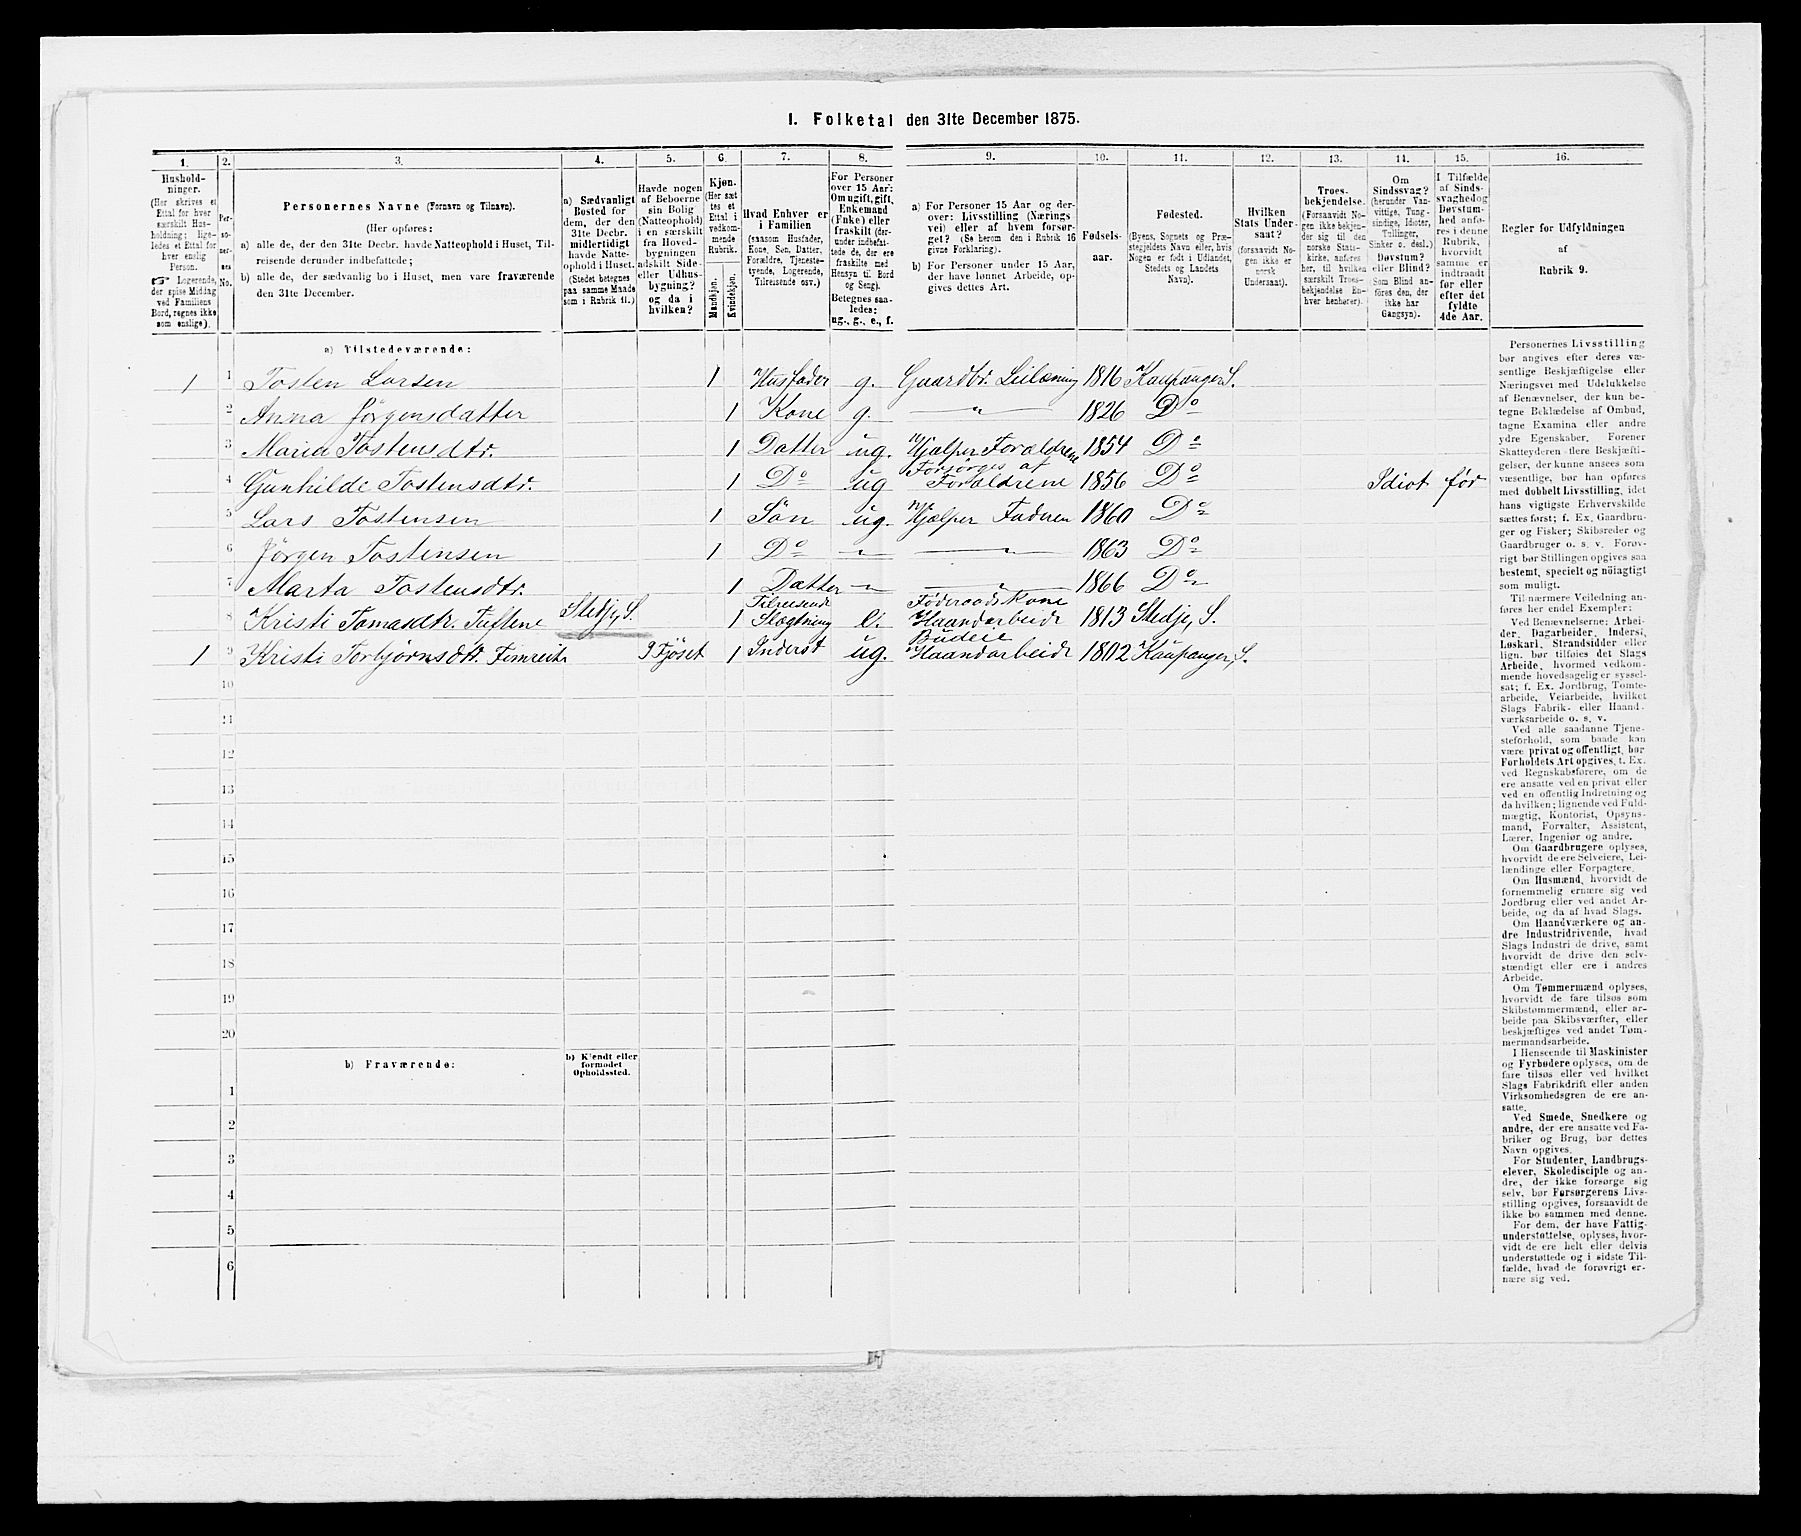 I. Folketal den 31te December 1875.
1. 2. 3. 4. 5. 6. 7. 8. 9. 10. 11. 12. 13. 14. 15. 16.
Hushold-
ninger.
(Her skrives et
Ettal for hver
særskilt Hus-
holdning; lige-
ledes et Ettal for
hver enslig
Person.
☞ Logerende,
der spise Middag
ved Familiens
Bord, regnes ikke
som enslige).
Per-
so-
ner-
nes
No.
Personernes Navne (Fornavn og Tilnavn).
(Her opføres:
a) alle de, der den 31te Decbr. havde Natteophold i Huset, Til-
reisende derunder indbefattede;
b) alle de, der sædvanlig bo i Huset, men vare fraværende
den 31te December.
a) Sædvanligt
Bosted for
dem, der den
31te Decbr.
midlertidigt
havde Natte-
ophold i Huset.
(Stedet betegnes
paa samme Maade
som i Rubrik 11.)
Havde nogen
af Beboerne
sin Bolig
(Natteophold)
i en særskilt
fra Hoved-
bygningen
adskilt Side-
eller Udhus-
bygning?
og da i
hvilken?
Kjøn.
(Her sæt-
tes et
Ettal i
vedkom-
mende
Rubrik.
Mandkjøn.
Kvindekjøn.
Hvad Enhver er
i Familien
(saasom Husfader,
Kone, Søn, Datter,
Forældre, Tjeneste-
tyende, Logerende,
Tilreisende osv.)
For Personer
over 15 Aar:
Om ugift, gift,
Enkemand
(Enke) eller
fraskilt (der-
under indbefat-
tede de, der ere
fraskilte med
Hensyn til Bord
og Seng).
Betegnes saa-
ledes:
ug., g., e., f.
a) For Personer 15 Aar og der-
over: Livsstilling (Nærings-
vei) eller af hvem forsør-
get? (Se herom den i Rubrik 16
givne Forklaring).
b) For Personer under 15 Aar,
der have lønnet Arbeide, op-
gives dettes Art.
Fødsels-
aar.
Fødested.
(Byens, Sognets og Præ-
stegjeldets Navn eller, hvis
Nogen er født i Udlandet,
Stedets og Landets
Navn).
Hvilken
Stats Under-
saat?
(forsaavidt No-
gen ikke er
norsk
Undersaat).
Troes-
bekjendelse.
(Forsaavidt No-
gen ikke bekjen-
der sig til den
norske Stats-
kirke, anføres
her, til hvilken
særskilt Troes-
bekjendelse En-
hver henhører).
Om
Sindssvag?
(herunder Van-
vittige, Tung-
sindige, Idioter,
Tullinger,
Sinker o. desl.)
Døvstum?
eller Blind?
(Som Blind an-
føres den, der
ikke har
Gangsyn).
I Tilfælde
af Sinds-
svaghed og
Døvstum-
hed anfø-
res i denne
Rubrik,
hvorvidt
samme er
indtraadt
før eller
efter det
fyldte
4de Aar.
Regler for Udfyldningen
af
Rubrik 9.
a) Tilstedeværende:
1 1 Tosten Larsen 1 Husfader g. Gaardbr. Leilænding 1816 Kaupanger S.
2 Anna Jørgensdatter 1 Kone g. — " — 1826 Do
3 Maria Tostensdtr. 1 Datter ug. Hjælper Forældrene 1854 Do
4 Gunhilde Tostensdtr. 1 Do ug Forsørges af Forældrene 1856 Do Idiot før
5 Lars Tostensen 1 Søn ug. Hjælper Faderen 1860 Do
6 Jørgen Tostensen 1 Do — " — — " — 1863 Do
7 Marta Tostensdtr. 1 Datter — " — — " — 1866 Do
8 Kristi Tomasdtr. Tuftene Stedje, S. 1 Tilreisende Slægtning e. Føderaadskone Haandarbeide 1813 Stedje, S.
1 9 Kristi Torbjørnsdtr. Fimreite I Fjøset 1 Inderst ug. Budeie Haandarbeide 1802 Kaupanger, S.
10
11
12
13
14
15
16
17
18
19
20
b) Fraværende:
b) Kjendt eller
formodet
Opholdssted.
1
2
3
4
5
6
Personernes Livsstilling
bør angives efter deres væ-
sentlige Beskjæftigelse eller
Næringsvei med Udelukkelse
af Benævnelser, der kun be-
tegne Beklædelse af Ombud,
tagne Examina eller andre
ydre Egenskaber. Forener
Skatteyderen flere Beskjæfti-
gelser, der kunne ansees som
væsentlige, bør han opføres
med dobbelt Livsstilling, idet
hans vigtigste Erhvervskilde
sættes først; f. Ex. Gaardbru-
ger og Fisker; Skibsreder og
Gaardbruger o. s. v. Forøv-
rigt bør Stillingen opgives saa
bestemt, specielt og nøiagtigt
som muligt.
Til nærmere Veiledning an-
føres her endel Exempler:
Ved Benævnelserne: Arbei-
der, Dagarbeider, Inderst,
Løskarl, Strandsidder eller
lign. bør tilføies det Slags
Arbeide, hvormed vedkom-
mende hovedsagelig er syssel-
sat; f. Ex. Jordbrug, Tomte-
arbeide, Veiarbeide, hvilket
Slags Fabrik- eller Haand-
værksarbeide o. s. v.
Ved alle saadanne Tjene-
steforhold, som baade kan
være privat og offentligt, bør
Forholdets Art opgives, t. Ex.
ved Regnskabsførere, om de
ere ansatte ved en privat eller
ved en offentlig Indretning og
da hvilken; lignende ved Fuld-
mægtig, Kontorist, Opsyns-
mand, Forvalter, Assistent,
Lærer, Ingeniør og andre.
Om Gaardbrugere oplyses,
hvorvidt de ere Selveiere, Lei-
lændinge eller Forpagtere.
Om Husmænd, hvorvidt de
fornemmelig ernære sig ved
Jordbrug eller ved andet Ar-
beide, og da af hvad Slags.
Om Haandværkere og an-
dre Industridrivende, hvad
Slags Industri de drive, samt
hvorvidt de drive den selv-
stændigt eller ere i andres
Arbeide.
Om Tømmermænd oplyses,
hvorvidt de fare tilsøs som
Skibstømmermænd, eller ar-
beide paa Skibsværfter, eller
beskjæftiges ved andet Tøm-
mermandsarbeide.
I Henseende til Maskinister
og Fyrbødere oplyses, om de
fare tilsøs eller ved hvilket
Slags Fabrikdrift eller anden
Virksomhedsgren de ere an-
satte.
Ved Smede, Snedkere og
andre, der ere ansatte ved Fa-
briker og Brug, bør dettes
Navn opgives.
For Studenter, Landbrugs-
elever, Skoledisciple og an-
dre, der ikke forsørge sig
selv, bør Forsørgerens Livs-
stilling opgives, forsaavidt de
ikke bo sammen med denne.
For dem, der have Fattig-
understøttelse, oplyses, hvor-
vidt de ere helt eller delvis
understøttede og i sidste Til-
fælde, hvad de forøvrigt er-
nære sig ved.